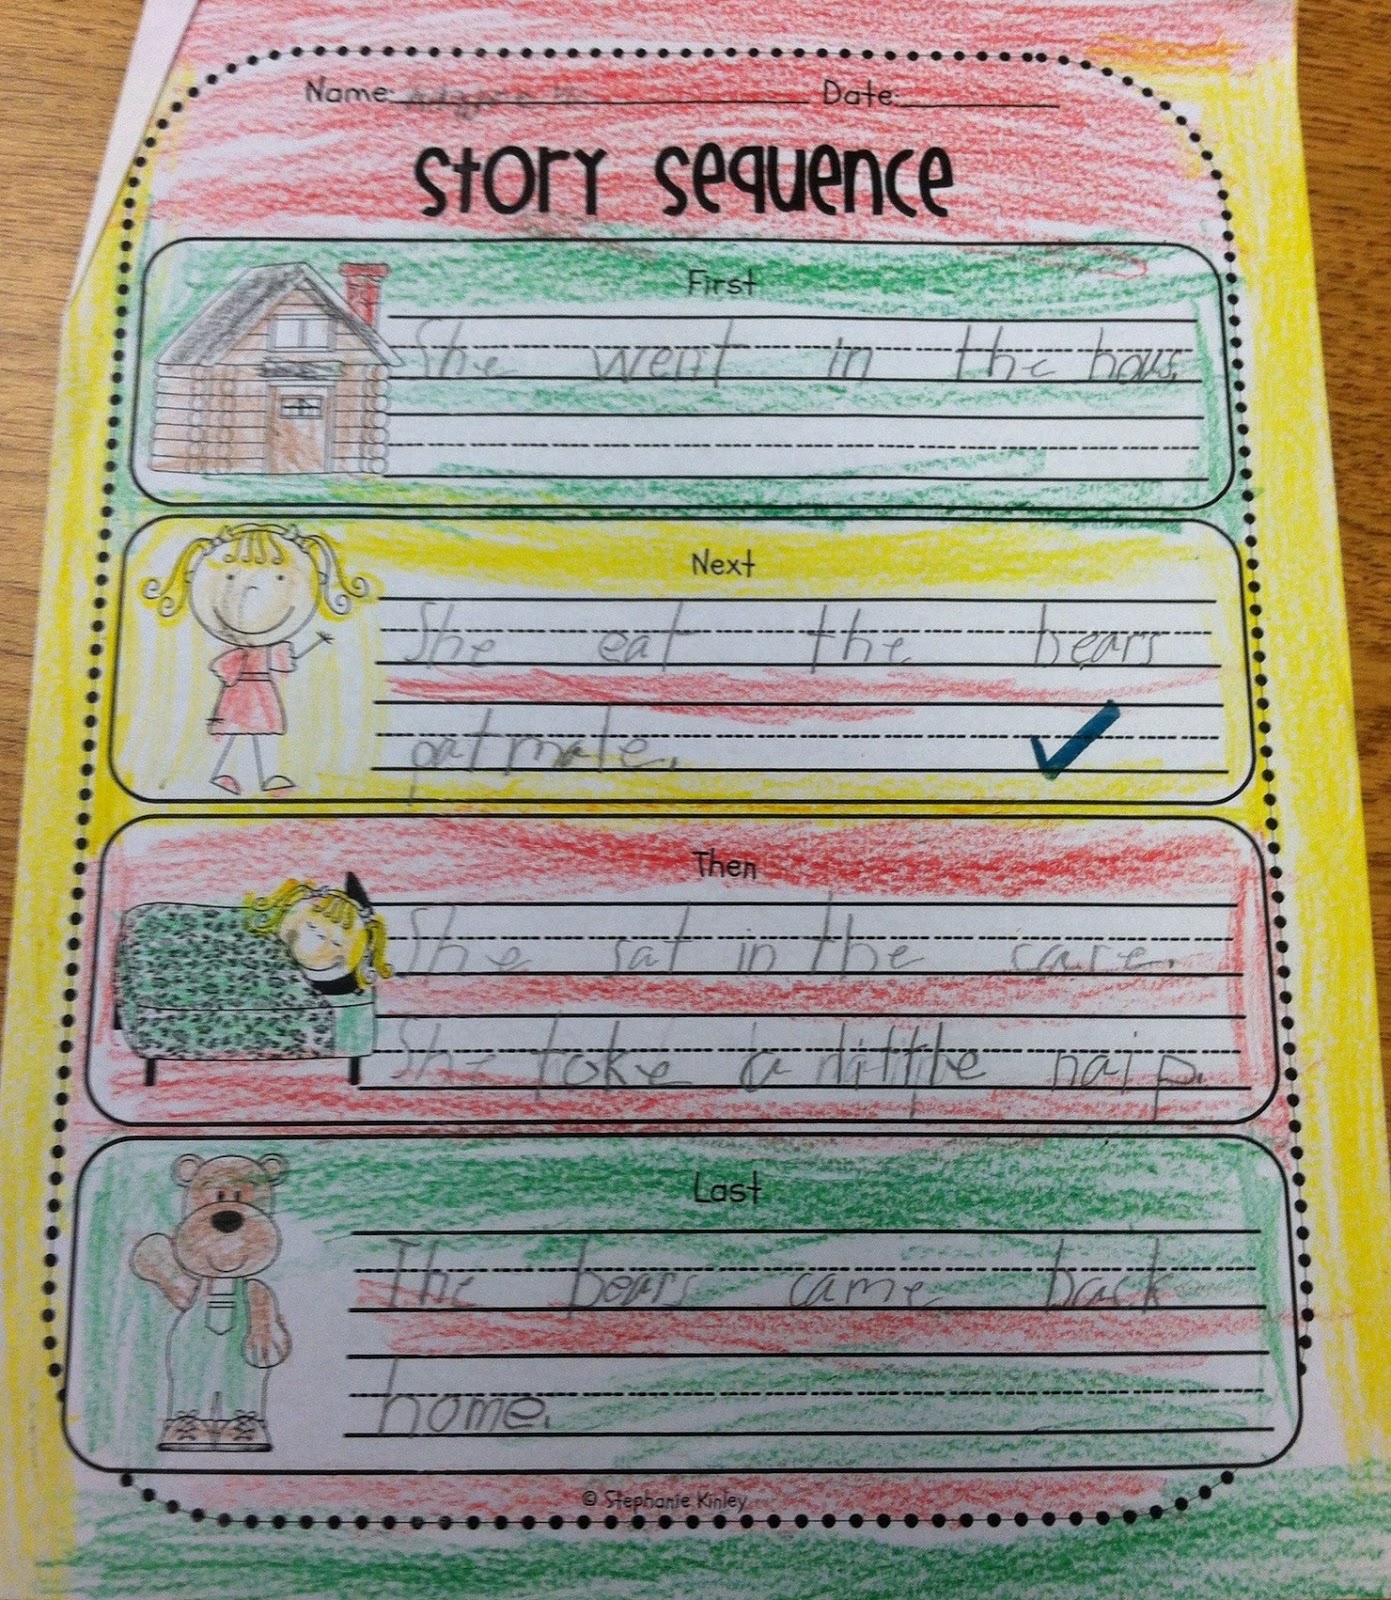 Name: Date:
Story Sequence
First
She went in the hous.
Next
She eat the bears
oatmale.
Then
She sat in the care.
She toke a little naip.
Last
The bears came back
home.
© Stephanie Kinley